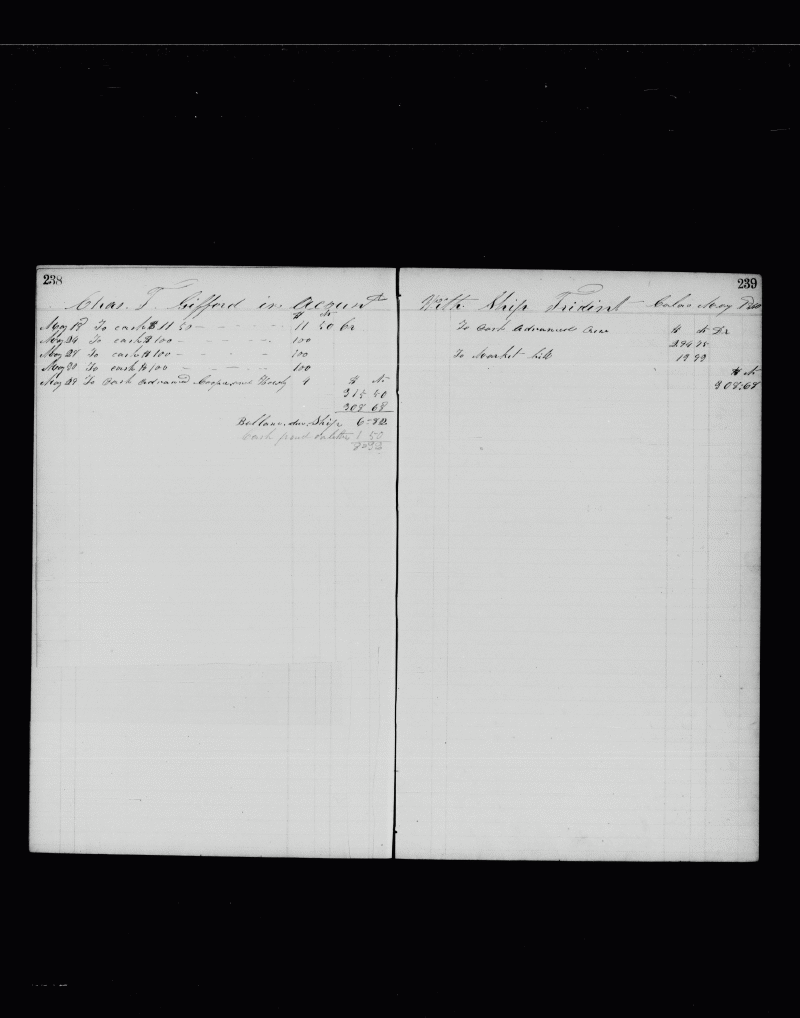 238
Chas. F. Gifford in Account
$ cts
May 18 To cash $ 11 50 - - - - 11 50 Cr
May 24 To cash $ 100 - - - - 100
May 28 To cash $ 100 - - - - 100
May 30 To cash $ 100 - - - - 100
May 29 To Cash Advanced 4
$ cts
315 50
308 68
Ballance due Ship 6-82
Cash paid 1 50
239
With Ship Trident Calao May
To Cash Advanced Crew $ cts Dr
To Market bill
$ cts
308.68